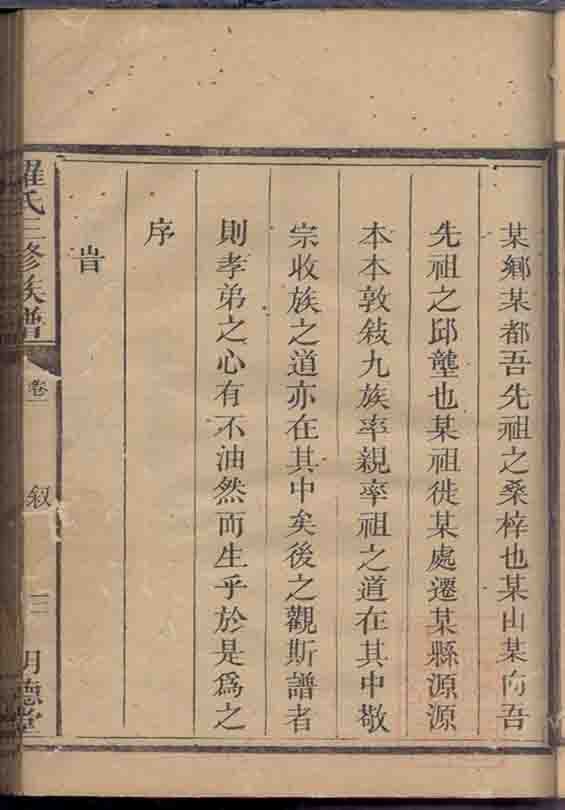 某鄉某都吾先祖之桑梓也某山某向吾
先祖之邱壟也某祖徙某處遷某縣源源
本本敦敍九族率親率祖之道在其中敬
宗收族之道亦在其中矣後之觀斯譜者
則孝弟之心有不油然而生乎於是爲之
序
旹
羅氏三修族譜
卷一
叙
三
明德堂